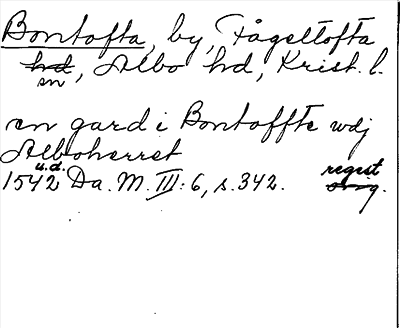 Bontofta, by, Fågeltofta
hd sn, Albo hd, Krist. l.
en gard i Bontoffte wdj
Alboherret
1542 u.d. Da. M. III: 6, s. 342. regist
orig.